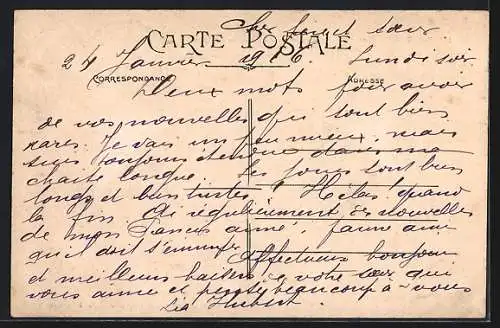 Cher frère et sœur
CARTE POSTALE
24 Janvier 1916. Lundi soir
CORRESPONDANCE ADRESSE
Deux mots pour avoir
de vos nouvelles qui sont bien
rares. Je vais un peu mieux, mais
suis toujours étendue dans ma
chaise longue. Les jours sont bien
longs et bien tristes. Hélas quand
la fin. Ai régulièrement des nouvelles
de mon fiancé aimé, pauvre ami
qu'il doit s'ennuyer. Affectueux bonjour
et meilleurs baisers de votre sœur qui
vous aime et pense beaucoup à vous
Hubert.